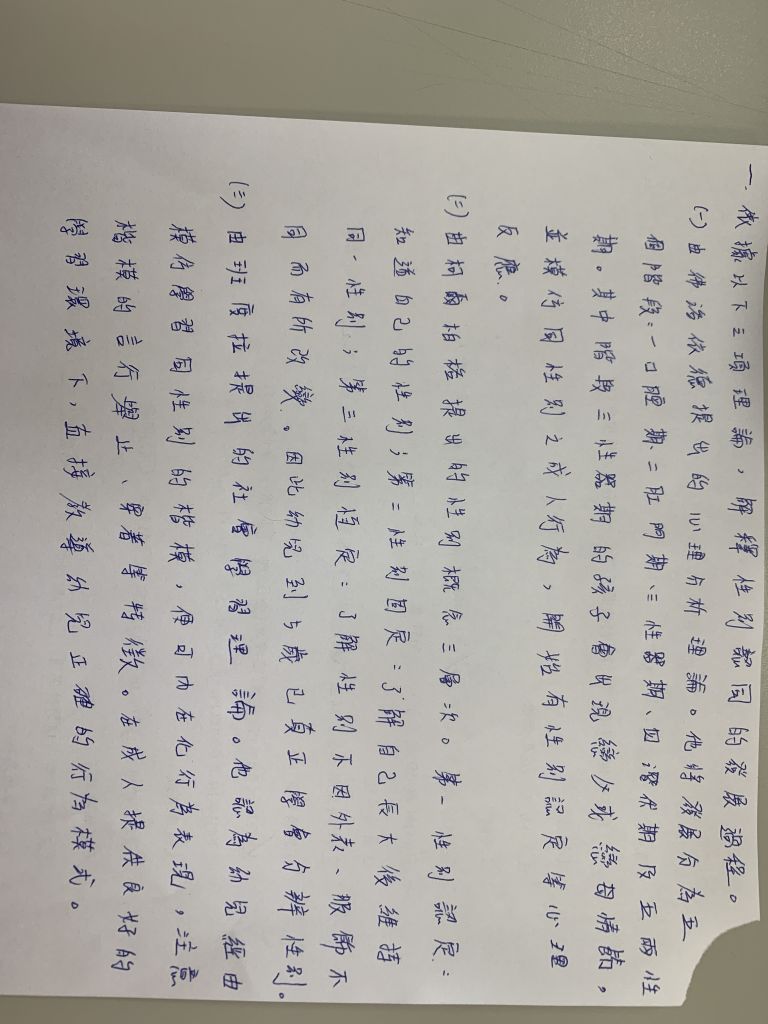 一. 依據以下三項理論，解釋性別認同的發展過程。
(一) 由佛洛依德提出的心理分析理論。他將發展分為五
個階段：一口腔期、二肛門期、三性器期、四潛伏期及五兩性
期。其中階段三性器期的孩子會出現戀父或戀母情節，
並模仿同性別之成人行為，開始有性別認定等心理
反應。
(二) 由柯爾柏格提出的性別概念三層次。第一性別認定：
知道自己的性別；第二性別固定：了解自己長大後維持
同一性別；第三性別恆定：了解性別不因外表、服飾不
同而有所改變。因此幼兒到5歲已真正學會分辨性別。
(三) 由班度拉提出的社會學習理論。他認為幼兒經由
模仿學習同性別的楷模，便可內在化行為表現，注意
楷模的言行舉止、穿著等特徵。在成人提供良好的
學習環境下，直接教導幼兒正確的行為模式。